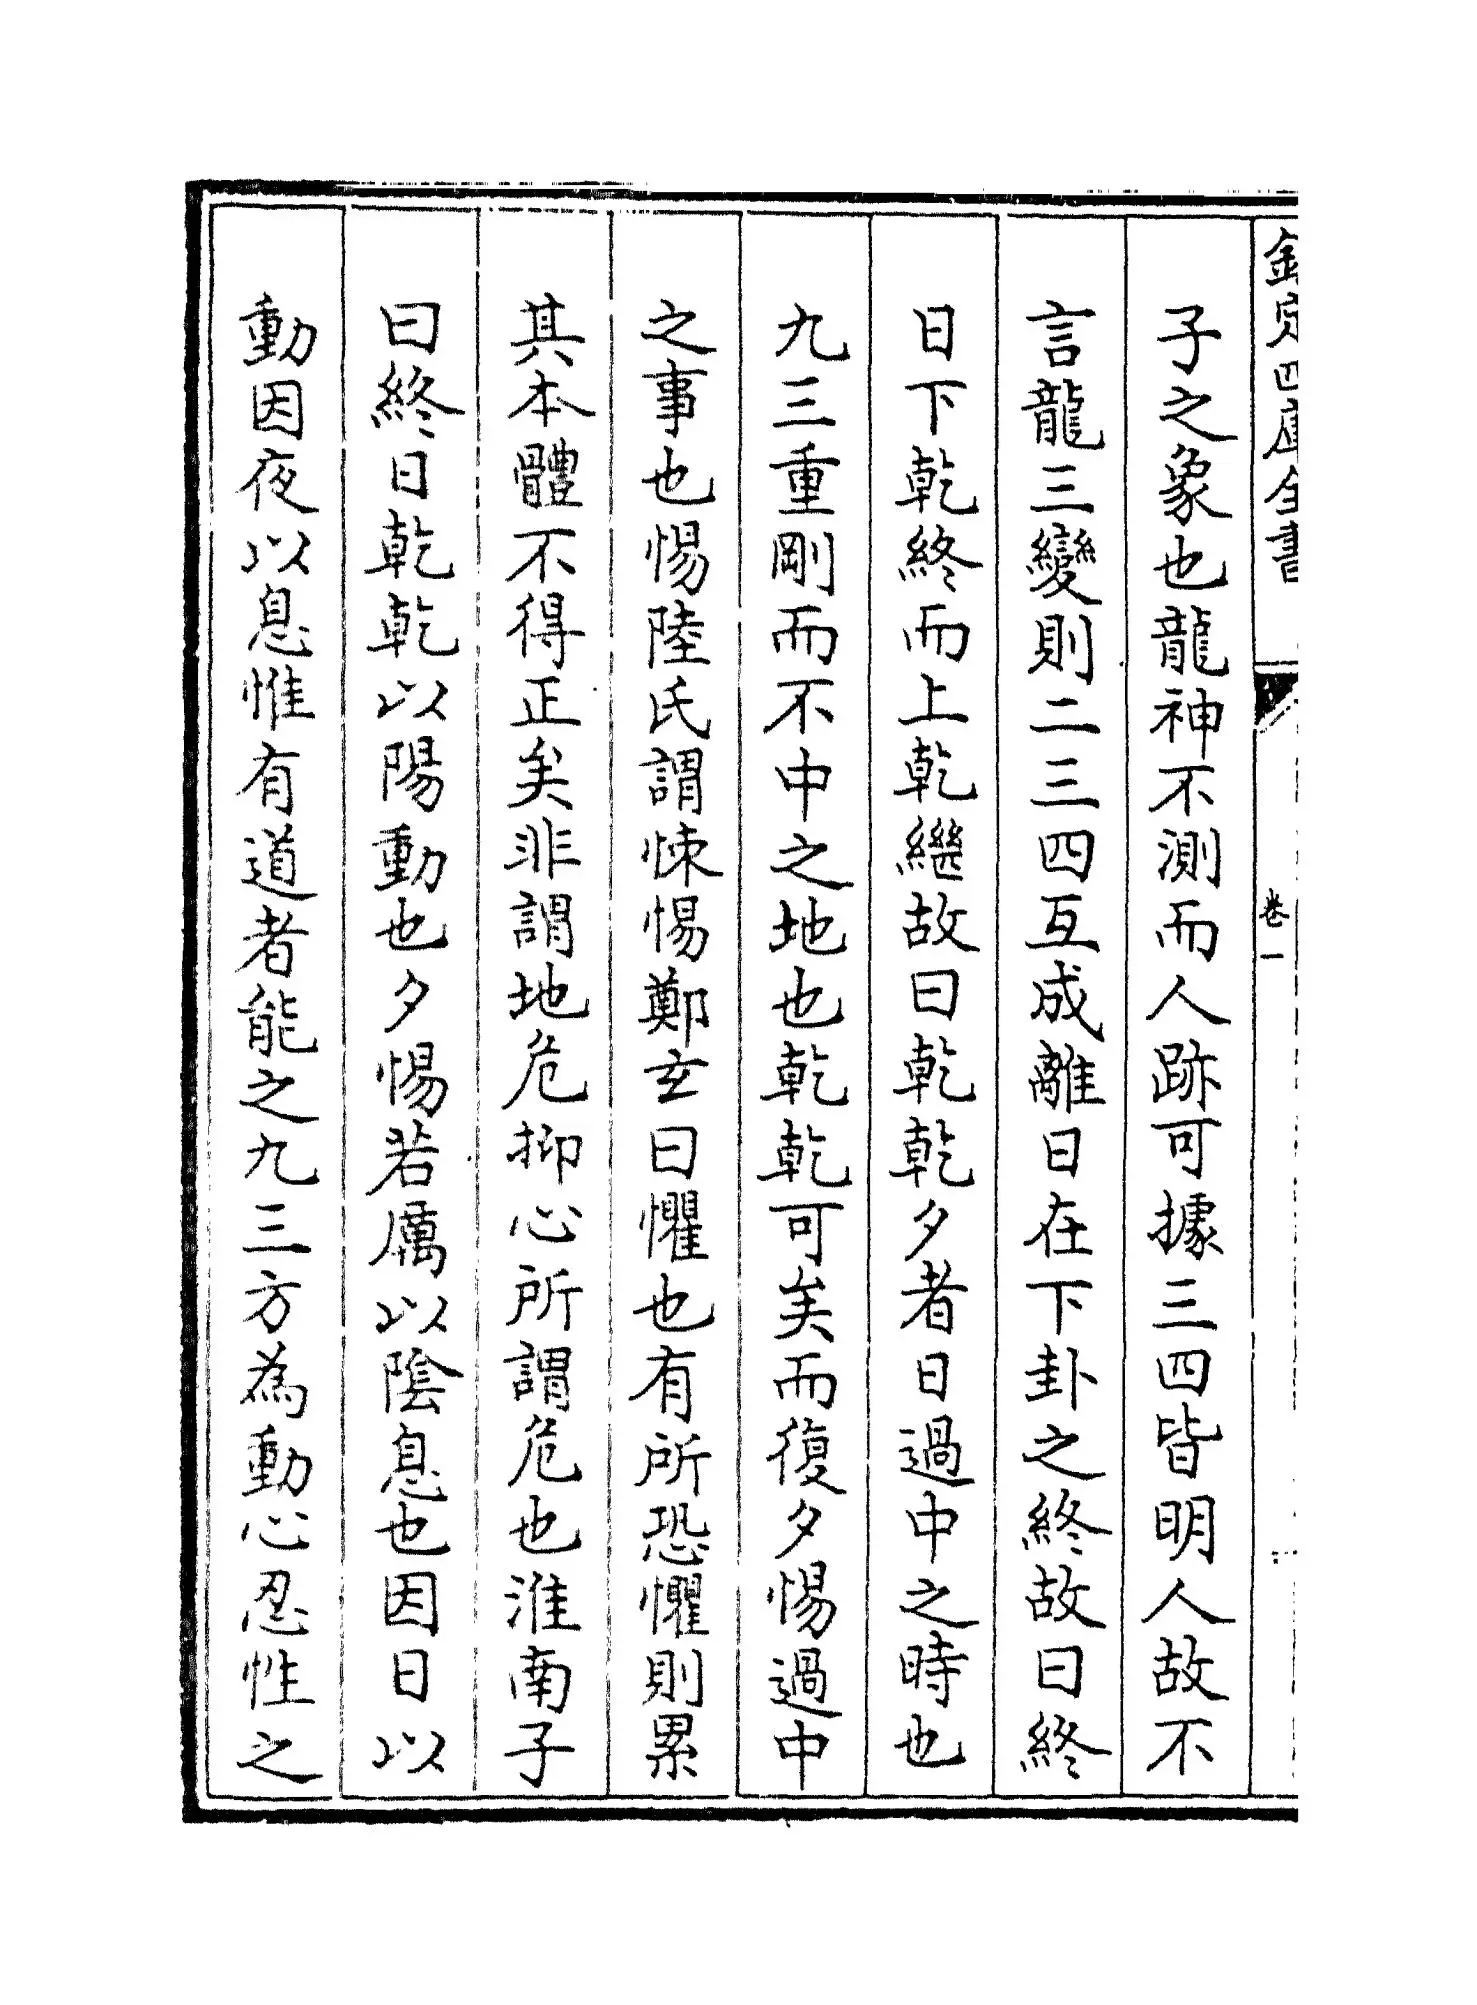 欽定四庫全書
卷一
子之象也龍神不測而人跡可據三四皆明人故不
言龍三變則二三四互成離日在下卦之終故曰終
日下乾終而上乾繼故曰乾乾夕者日過中之時也
九三重剛而不中之地也乾乾可矣而復夕惕過中
之事也惕陸氏謂悚惕鄭玄曰懼也有所恐懼則累
其本體不得正矣非謂地危抑心所謂危也淮南子
曰終日乾乾以陽動也夕惕若厲以陰息也因日以
動因夜以息惟有道者能之九三方為動心忍性之